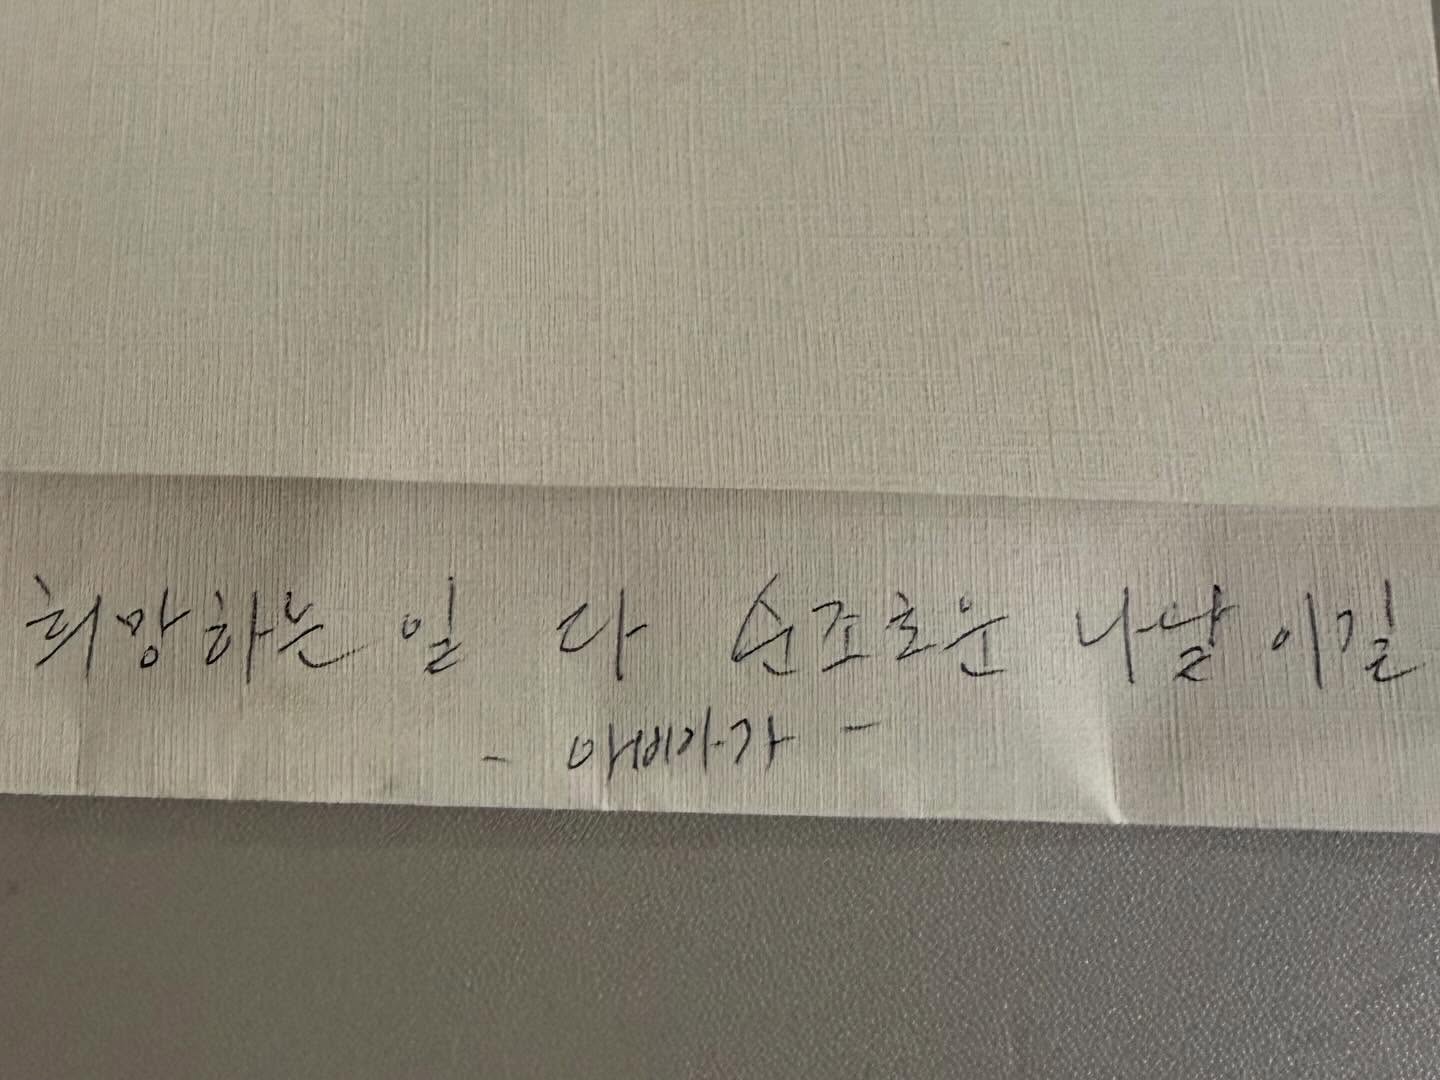 희망하는 일 다 순조로운 나날 이길
- 애비가 -